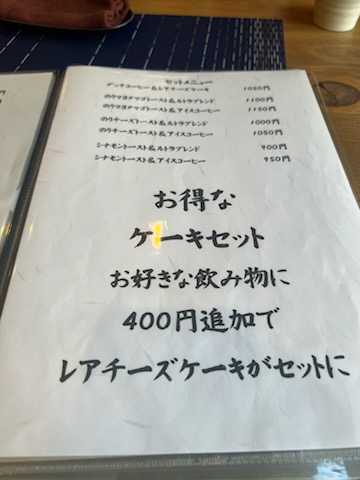 セットメニュー
ダッチコーヒー&レアチーズケーキ 1050円
のりマヨタマゴトースト&ルトラブレンド 1100円
のりマヨタマゴトースト&アイスコーヒー 1150円
のりチーズトースト&ルトラブレンド 1000円
のりチーズトースト&アイスコーヒー 1050円
シナモントースト&ルトラブレンド 900円
シナモントースト&アイスコーヒー 950円
お得な
ケーキセット
お好きな飲み物に
400円追加で
レアチーズケーキがセットに